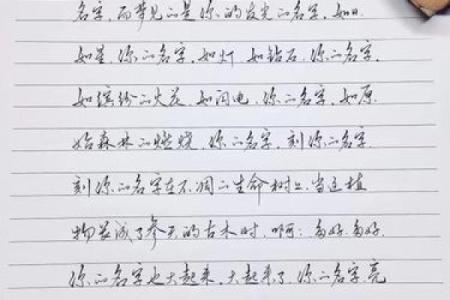 名字,而梦见的是你的发光的名字,如日
如星,你的名字,如灯,如钻石,你的名字,
如缤纷的火花,如闪电,你的名字,如原
始森林的燃烧,你的名字,刻你的名字,
刻你的名字在不凋的生命树上,当这植
物长成了参天的古木时,啊啊,多好,多好,
你的名字也大起来,大起来了,你的名字,亮